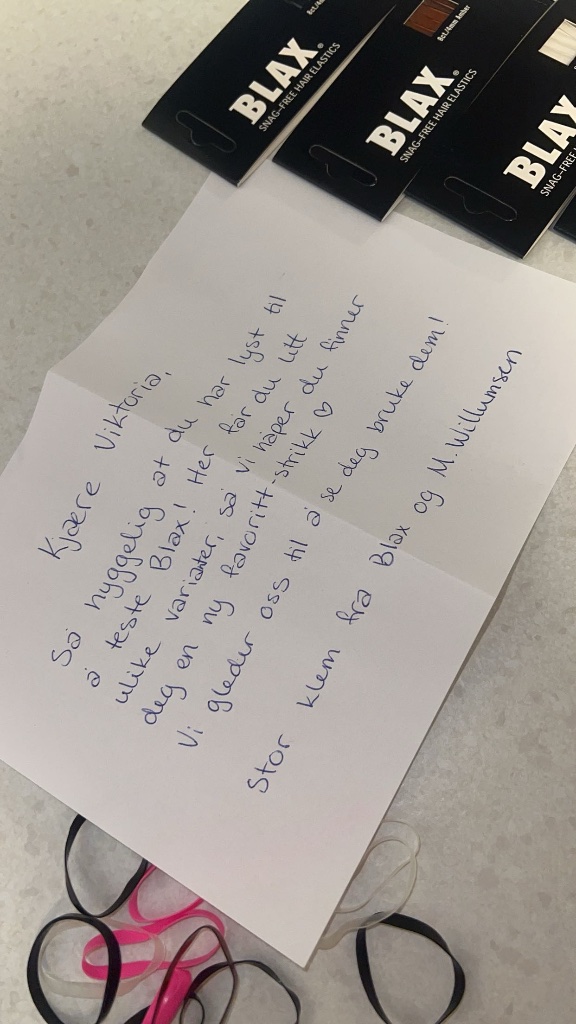 BLAX®
SNAG-FREE HAIR ELASTICS
8ct/4mm Amber
BLAX®
SNAG-FREE HAIR ELASTICS
BLAX
SNAG-FREE
Kjære Viktoria,
Så hyggelig at du har lyst til
å teste Blax! Her får du litt
ulike varianter, så vi håper du finner
deg en ny favoritt-strikk ♡
Vi gleder oss til å se deg bruke dem!
Stor klem fra Blax og M. Willumsen